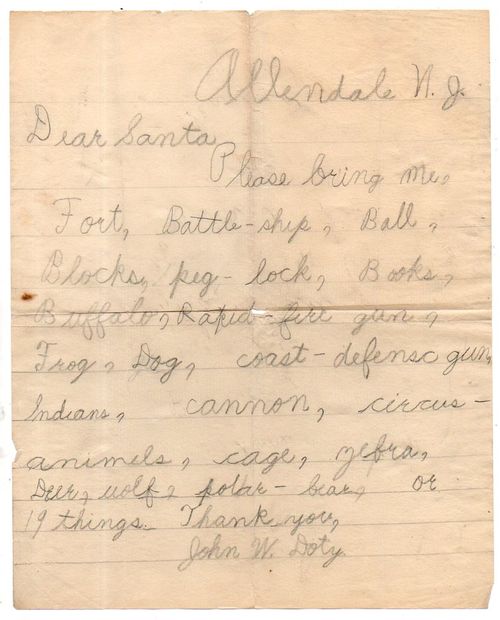 Allendale N. J.
Dear Santa,
Please bring me,
Fort, Battle-ship, Ball,
Blocks, peg-lock, Books,
Buffalo, Rapid-fire gun,
Frog, Dog, coast-defense gun,
Indians, cannon, circus-
animels, cage, zebra,
Deer, wolf, polar-bear, or
19 things. Thank you,
John W. Doty